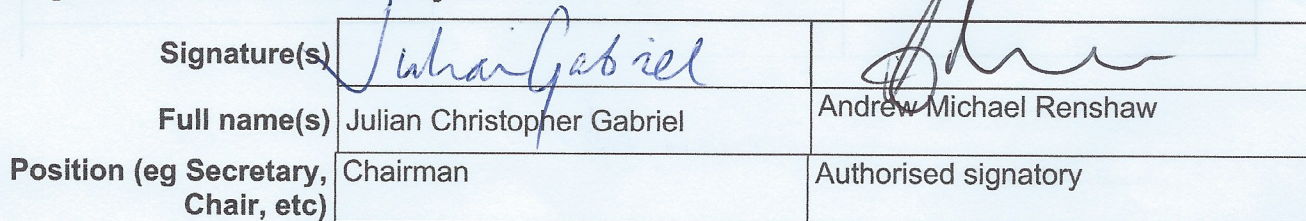 Signature(s) Julian Gabriel
Full name(s) Julian Christopher Gabriel Andrew Michael Renshaw
Position (eg Secretary, Chair, etc) Chairman Authorised signatory